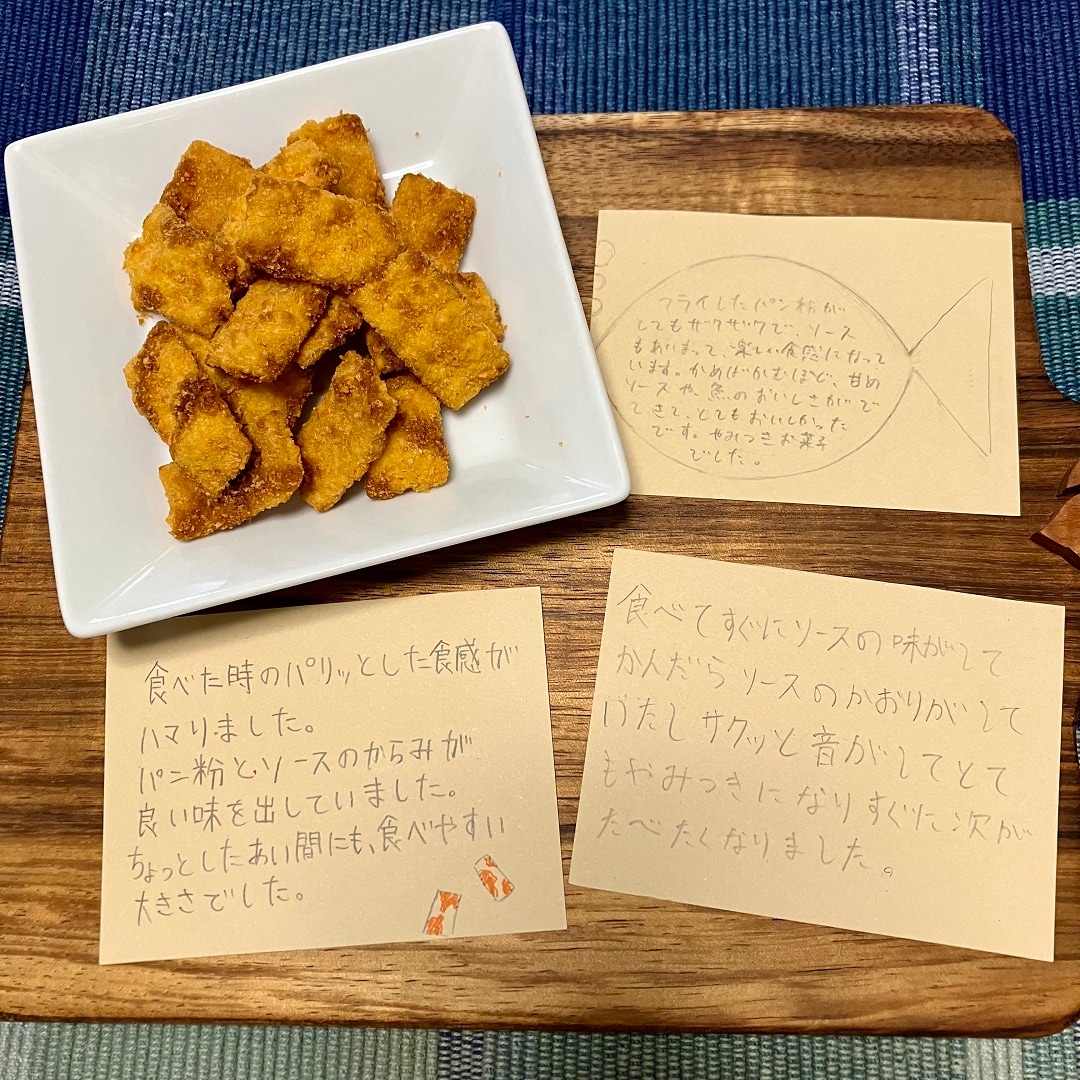 フライしたパン粉が
とてもザクザクで、ソース
もあいまって、楽しい食感になって
います。かめばかむほど、甘め
ソースや、魚のおいしさがで
てきて、とてもおいしかった
です。やみつきお菓子
でした。
食べた時のパリッとした食感が
ハマりました。
パン粉とソースのからみが
良い味を出していました。
ちょっとしたあい間にも、食べやすい
大きさでした。
食べてすぐにソースの味がして
かんだらソースのかおりがして
げたしサクッと音がしてとて
もやみつきになりすぐに次が
たべたくなりました。